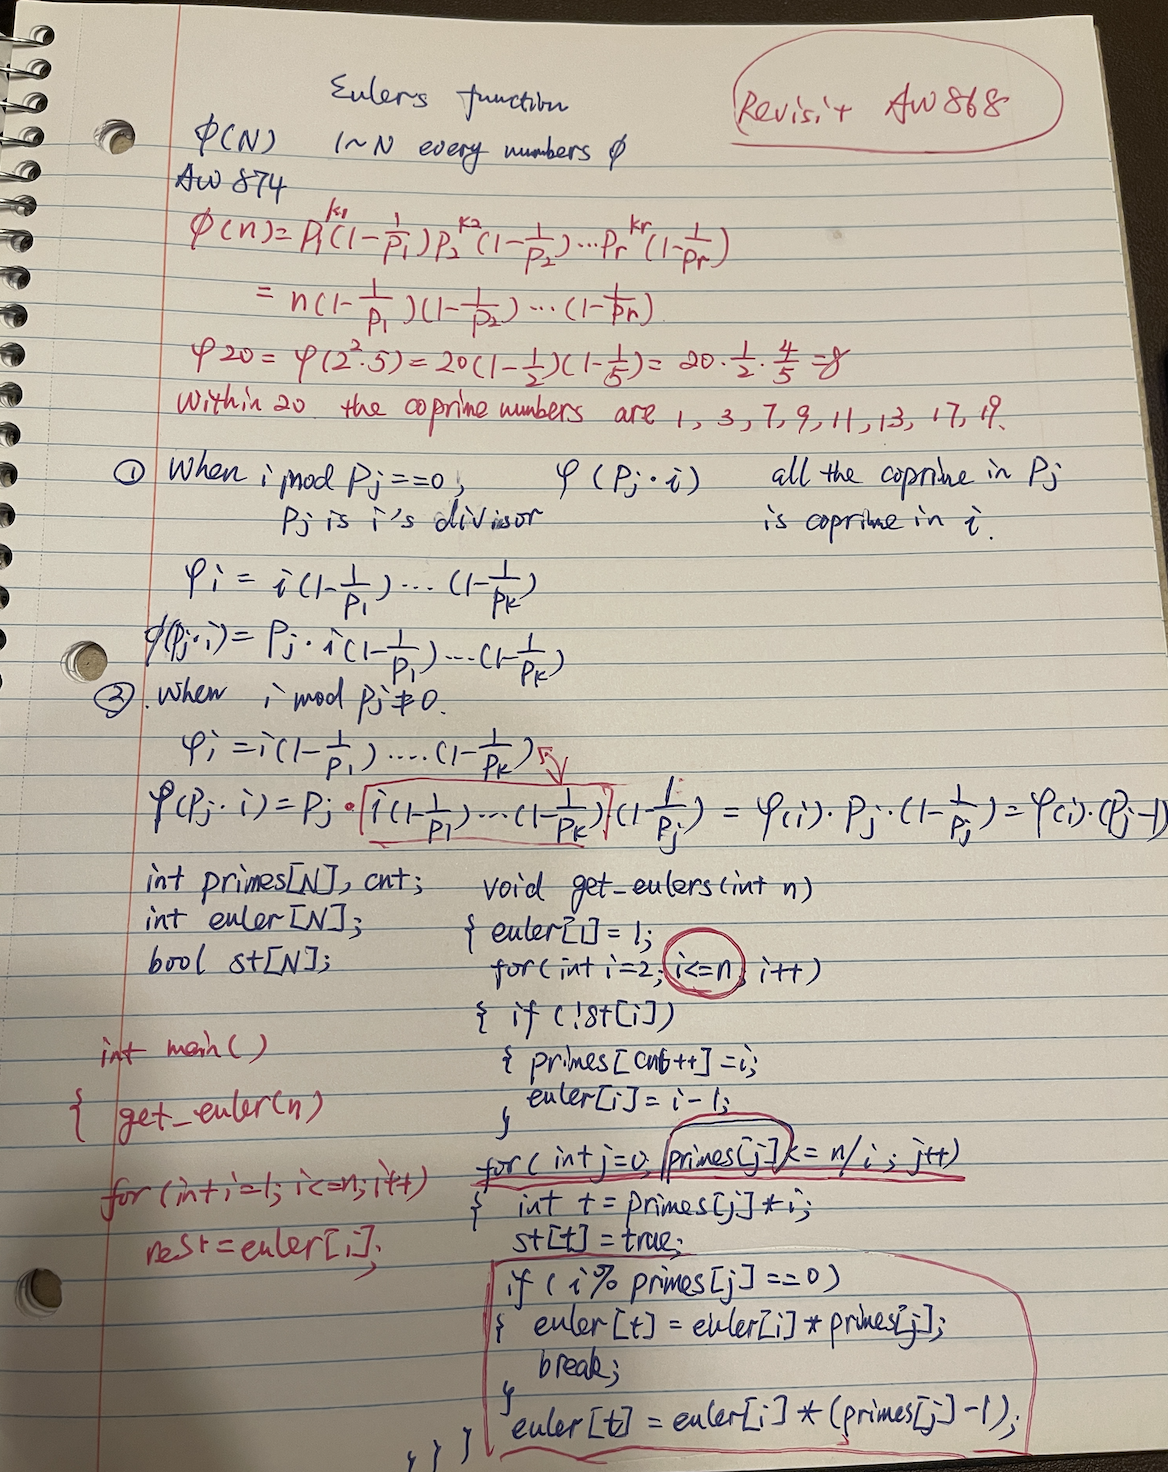 Eulers function
Revisit AW868
ϕ(N) 1~N every numbers ϕ
AW 874
ϕ(n)= P₁^k₁(1-1/P₁)P₂^k₂(1-1/P₂)...Pr^kr(1-1/Pr)
= n(1-1/P₁)(1-1/P₂)...(1-1/Pn)
φ20 = φ(2²·5) = 20(1-1/2)(1-1/5) = 20·1/2·4/5 =8
within 20 the coprime numbers are 1, 3, 7, 9, 11, 13, 17, 19.
① When i mod Pj==0, φ(Pj·i) all the coprime in Pj
Pj is i's divisor is coprime in i.
φi = i(1-1/P₁)...(1-1/Pk)
ϕ(Pj·i) = Pj·i(1-1/P₁)...(1-1/Pk)
② . when i mod Pj≠0.
φi =i(1-1/P₁)....(1-1/Pk)
φ(Pj·i) = Pj·i(1-1/P₁)...(1-1/Pk)(1-1/Pj) = φ(i)·Pj·(1-1/Pj)=φ(i)·(Pj-1)
int primes[N], cnt;
int euler[N];
bool st[N];
void get_eulers(int n)
{ euler[1]=1;
for(int i=2; i<=n; i++)
{ if (!st[i])
{ primes[cnt++]=i;
euler[i]= i-1;
}
for( int j=0; primes[j]<= n/i; j++)
{ int t = primes[j]*i;
st[t]=true;
if ( i% primes[j]==0)
{ euler[t] = euler[i]*primes[j];
break;
}
euler[t] = euler[i]*(primes[j]-1);
} } }
int main()
{ get_euler(n)
for (int i=1; i<=n; i++)
rest=euler[i];